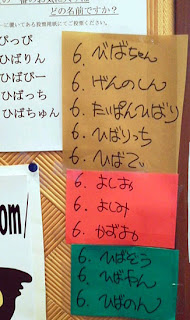 どの名前ですか？
に置いてある投票用紙にてご投票ください。
ぴっぴ
ひばりん
ひばぴー
ひばっち
ひばちゅん
om/
6. びばちゃん
6. げんのしん
6. たいぱんひばり
6. ひばりっち
6. よしお
6. よしみ
6. かずお
6. ひばぞう
6. ひばやん
6. ひばのん